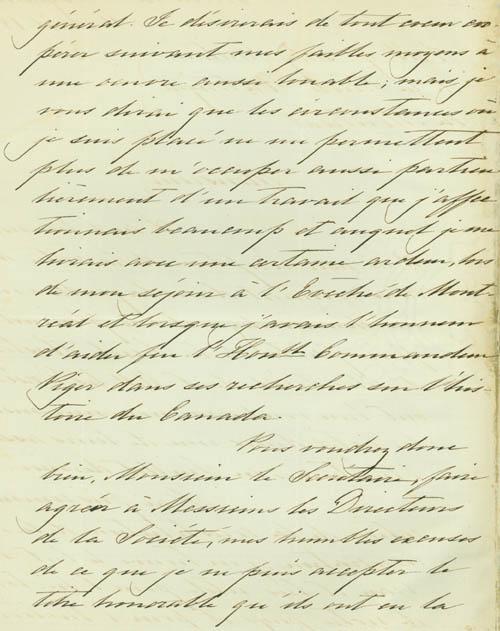 général. Je désirerais de tout coeur coo-
pérer suivant mes faibles moyens à
une oeuvre aussi louable; mais je
vous dirai que les circonstances où
je suis placé ne me permettent
plus de m'occuper aussi particu
lièrement d'un travail que j'affec
tionnais beaucoup et auquel je me
livrais avec une certaine ardeur, lors
de mon séjour à l'Evêché de Mont-
réal et lorsque j'avais l'honneur
d'aider feu l'Honble Commandeur
Viger dans ses recherches sur l'his-
toire du Canada.
Vous voudrez donc
bien, Monsieur le Secrétaire, faire
agréer à Messieurs les Directeurs
de la Société, mes humbles excuses
de ce que je ne puis accepter le
titre honorable qu'ils ont eu la